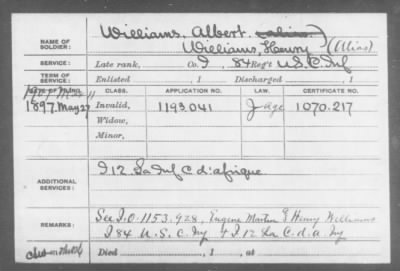 NAME OF SOLDIER: Williams, Albert.
Williams, Henry (Alias)
SERVICE: Late rank, Co. I, 84 Reg't U.S.C. Inf
TERM OF SERVICE: Enlisted , 1 Discharged , 1
DATE OF FILING. CLASS. APPLICATION NO. LAW. CERTIFICATE NO.
1897, May 27 Invalid, 1193.041 1070.217
Widow,
Minor,
ADDITIONAL SERVICES: I 12 La Inf C d'afrique
REMARKS: See I.O. 1153.928, Eugene Martin & Henry Williams
I 84 U.S.C. Inf & I 12 La C. d. a. Inf
Died , 1 , at